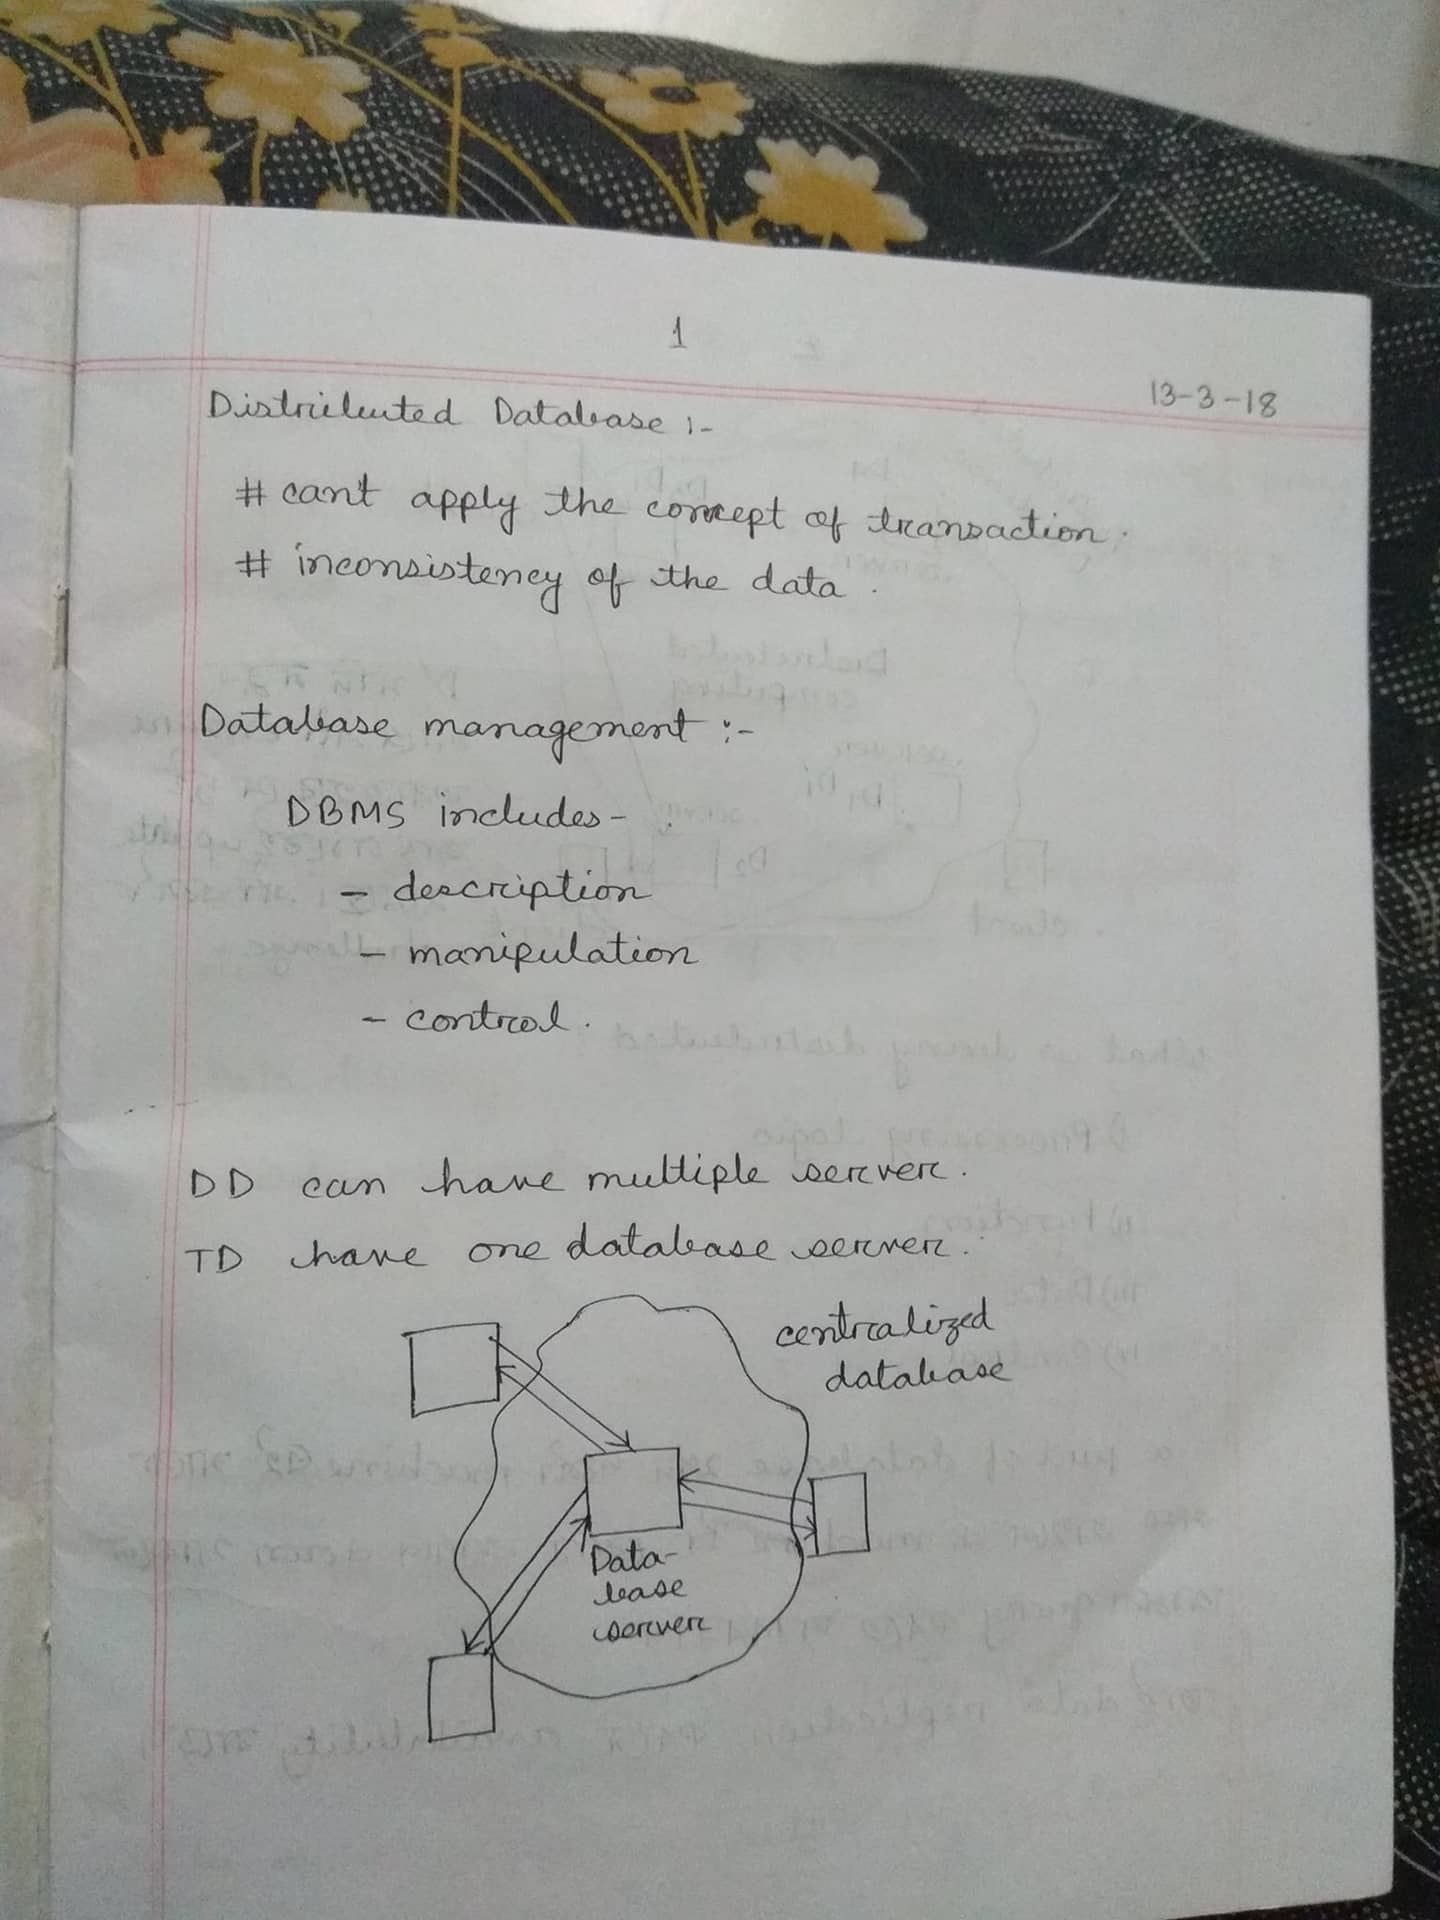 1
13-3-18
Distributed Database :-
# cant apply the concept of transaction.
# inconsistency of the data.
Database management :-
DBMS includes-
- description
- manipulation
- control.
DD can have multiple server.
TD have one database server.
centralized
database
Data-
base
server